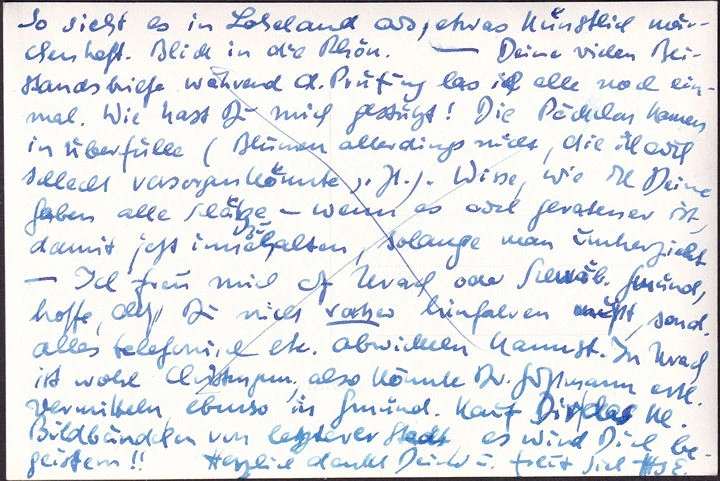 So sieht es in Loheland aus, etwas künstlich mär-
chenhaft. Blick in die Rhön. — Deine vielen Bei-
standsbriefe während d. Prüfung las ich alle noch ein-
mal. Wie hast Du mich gestützt! Die Päckchen kamen
in Überfülle (Blumen allerdings nicht, die ich auch
schlecht versorgen könnte z. Zt.). Wisse, wie ich Deine
Gaben alle schätze — wenn es auch geratener ist,
damit jetzt innezuhalten, solange man umherzieht
— Ich freu mich auf Urach oder Schwäb. Gmünd,
hoffe, daß Du nicht vorher hinfahren mußt, sond.
alles telefonisch etc. abwickeln kannst. In Urach
ist wohl also könnte Dr.
vermitteln, ebenso in Gmünd. Kauf Dir das kl.
Bildbändchen von letzterer Stadt es wird Dich be-
geistern!! Herzlich dankt Deine u. freut sich